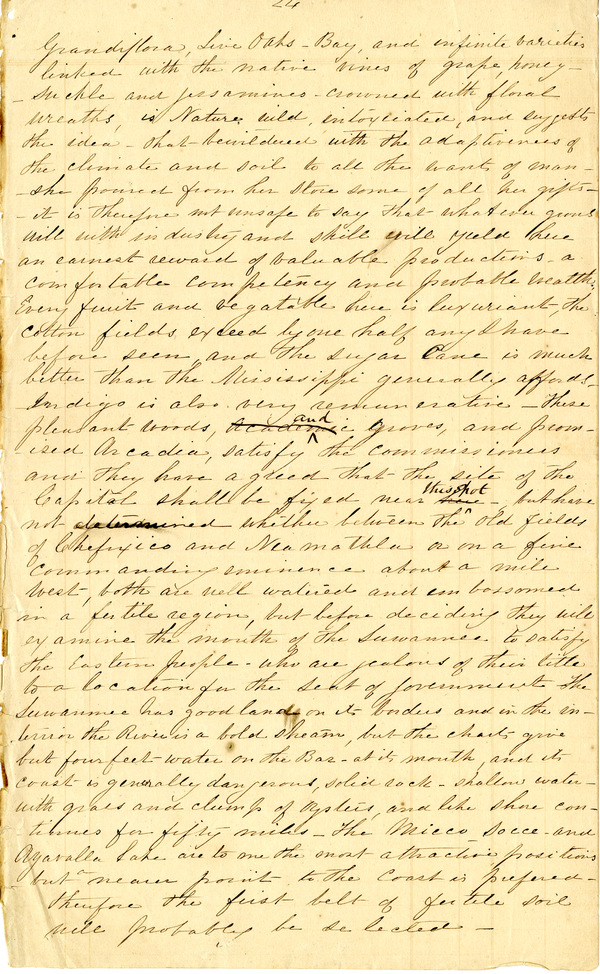 24
Grandiflora, Live Oaks - Bay, and infinite varieties
linked with the native vines of grape, honey-
- suckle and jessamines - crowned with floral
wreaths, is Nature wild, intoxicated, and suggests
the idea - that bewildered with the adaptiveness of
the climate and soil to all the wants of man -
- she poured from her store some of all her gifts -
- it is therefore not unsafe to say that whatever grows
will with industry and skill will yield here
an earnest reward of valuable productions - a
comfortable competency and probable wealth.
Every fruit and vegatable here is luxuriant, the
cotton fields exceed by one half any I have
before seen, and the sugar Cane is much
better than the Mississippi generally affords.
Indigo is also very remunerative - these
pleasant woods, and groves, and prom-
ised Arcadia, satisfy the commissioners
and they have agreed that the site of the
Capitol shall be fixed near this spot - but have
not determined whether between the old fields
of Chefixico and Neamathla or on a fine
commanding eminence about a mile
west, both are well watered and embossomed
in a fertile region, but before deciding they will
examine the mouth of the Suwannee to satisfy
the Eastern people - who are jealous of their title
to a location for the seat of government. The
Suwannee has good land on its borders and in the in-
terior the River is a bold stream, but the charts give
but four feet water on the Bar - at its mouth, and its
coast is generally dangerous, solid rock - shallow water -
with grass and clumps of Oysters, and like shore con-
tinues for fifty miles - The Micco Socce - and
Ayavalla Lake are to me the most attractive positions
- but a nearer point to the coast is prefered -
Therefore the first belt of fertile soil
will probably be selected -